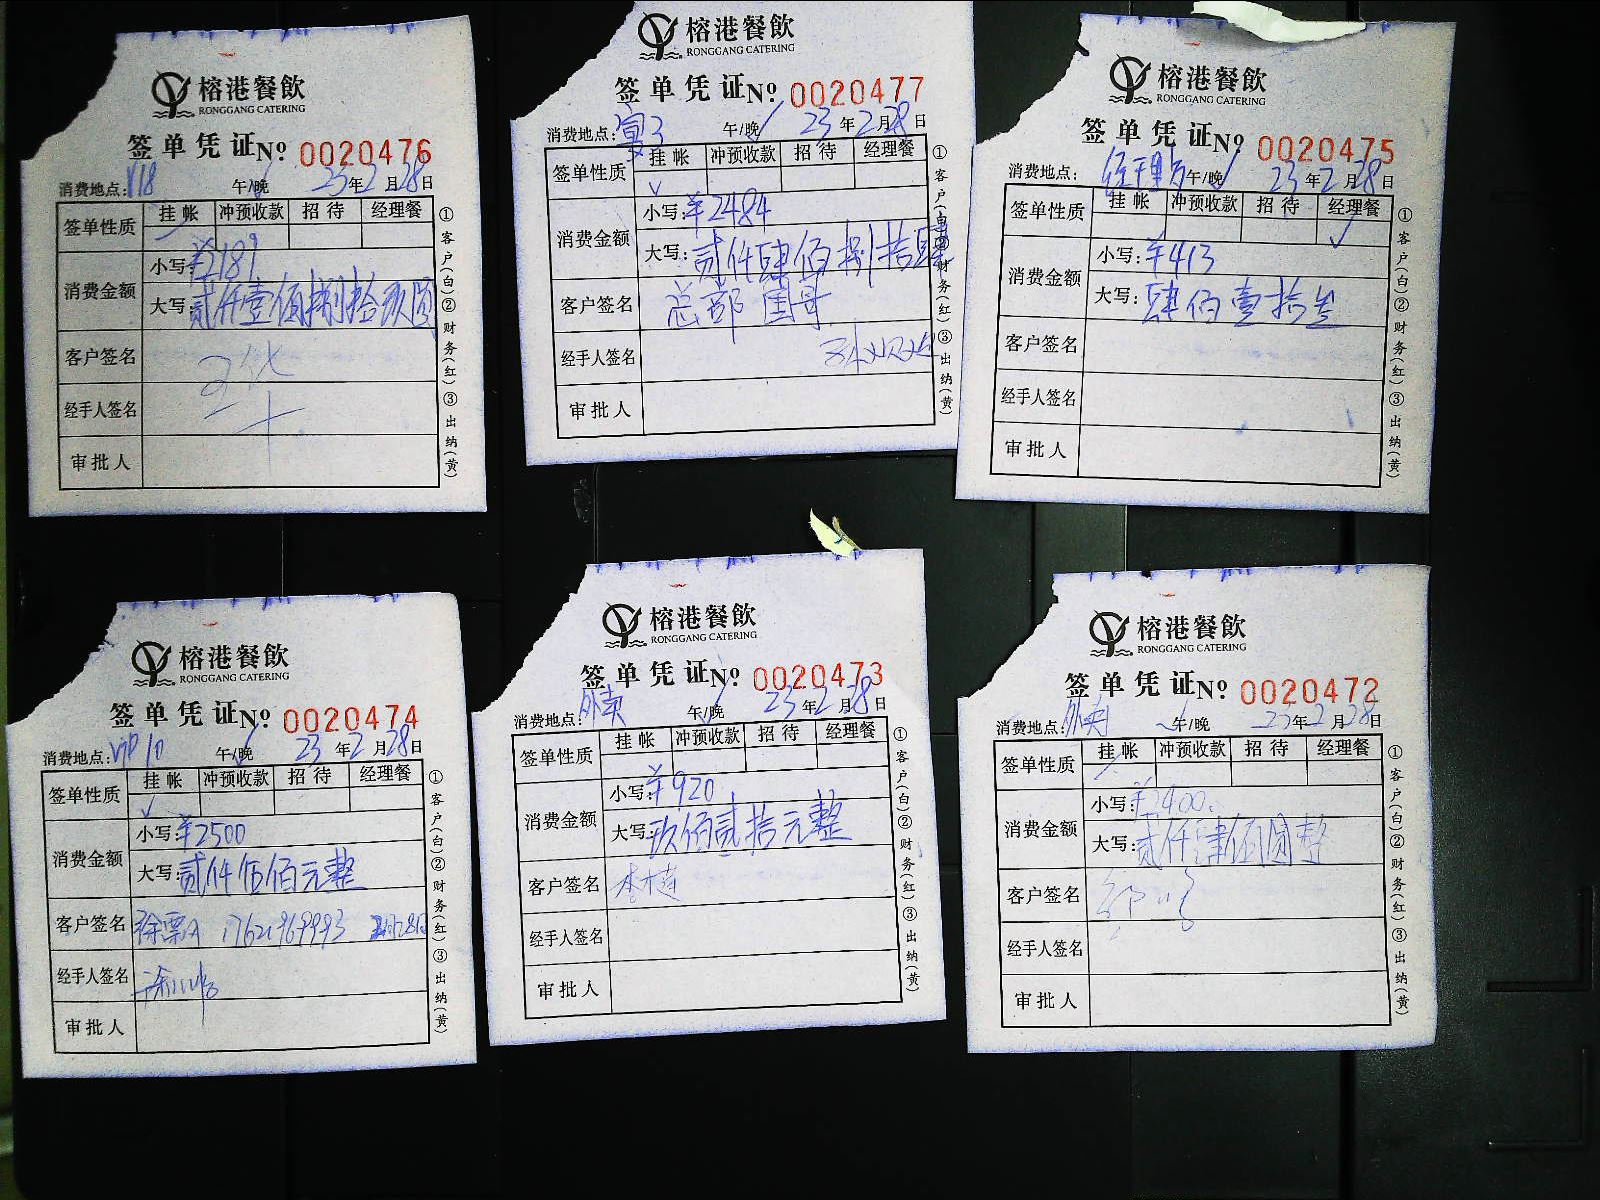 榕港餐飲
RONGGANG CATERING
签单凭证 № 0020476
消费地点: V18 午/晚 23年2月28日
签单性质 挂帐 冲预收款 招待 经理餐
消费金额 小写: ¥2189
大写: 贰仟壹佰捌拾玖圆
客户签名
经手人签名
审批人
①客户(白)②财务(红)③出纳(黄)
榕港餐飲
RONGGANG CATERING
签单凭证 № 0020477
消费地点: 宴3 午/晚 23年2月28日
签单性质 挂帐 冲预收款 招待 经理餐
消费金额 小写: ¥2484
大写: 贰仟肆佰捌拾肆
客户签名 总部 国哥
经手人签名
审批人
①客户(白)②财务(红)③出纳(黄)
榕港餐飲
RONGGANG CATERING
签单凭证 № 0020475
消费地点: 经理房 午/晚 23年2月28日
签单性质 挂帐 冲预收款 招待 经理餐
消费金额 小写: ¥413
大写: 肆佰壹拾叁
客户签名
经手人签名
审批人
①客户(白)②财务(红)③出纳(黄)
榕港餐飲
RONGGANG CATERING
签单凭证 № 0020474
消费地点: VIP10 午/晚 23年2月28日
签单性质 挂帐 冲预收款 招待 经理餐
消费金额 小写: ¥2500
大写: 贰仟伍佰元整
客户签名 17621969993
经手人签名
审批人
①客户(白)②财务(红)③出纳(黄)
榕港餐飲
RONGGANG CATERING
签单凭证 № 0020473
消费地点: 外卖 午/晚 23年2月28日
签单性质 挂帐 冲预收款 招待 经理餐
消费金额 小写: ¥920
大写: 玖佰贰拾元整
客户签名
经手人签名
审批人
①客户(白)②财务(红)③出纳(黄)
榕港餐飲
RONGGANG CATERING
签单凭证 № 0020472
消费地点: 外卖 午/晚 23年2月28日
签单性质 挂帐 冲预收款 招待 经理餐
消费金额 小写: ¥2400
大写: 贰仟肆佰圆整
客户签名
经手人签名
审批人
①客户(白)②财务(红)③出纳(黄)